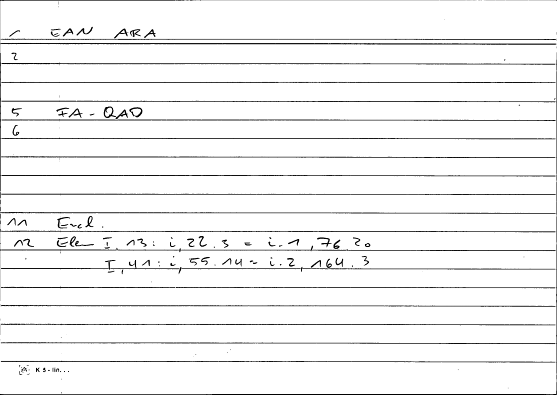 1 EAN ARA
2
5 FA-QAD
6
11 Eucl.
12 Elem I, 13: i, 22.3 = i.1, 76.20
I, 41: i, 55.14 = i.2, 164.3
K 5 - lin...